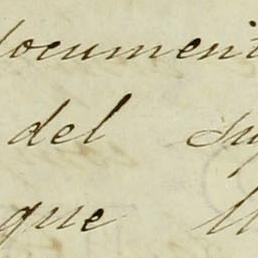 document
del su
que